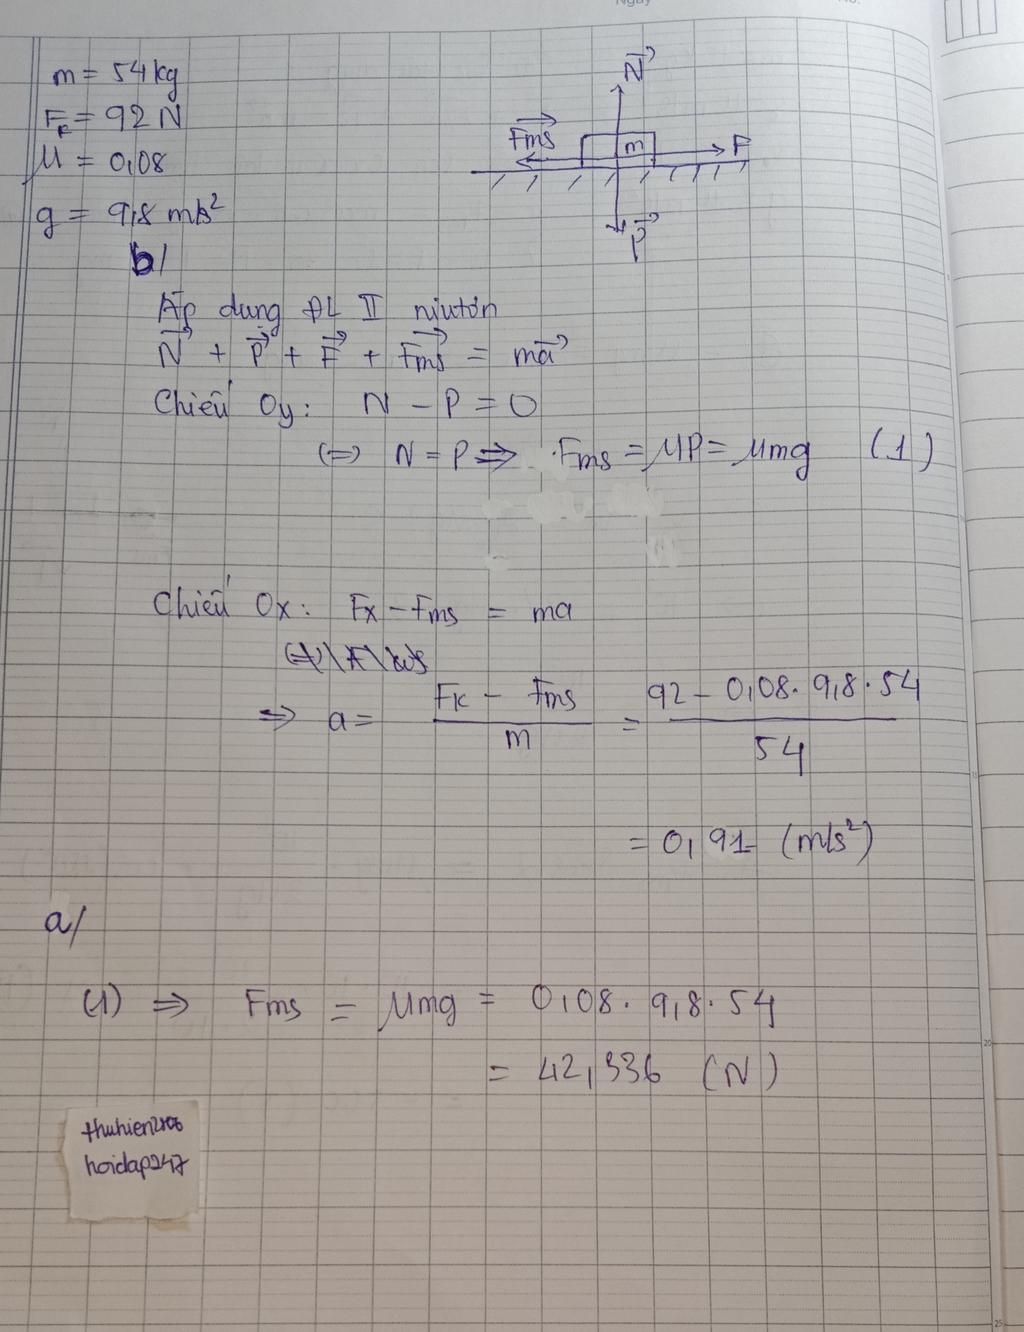 m = 54 kg
Fk = 92 N
μ = 0,08
g = 9,8 m/s²
N
Fms
m
F
P
b/
Áp dụng ĐL II njutơn
N + P + F + Fms = ma
Chiếu Oy: N - P = 0
(=) N = P => Fms = μP = μmg (1)
Chiếu Ox: Fk - Fms = ma
=> a = (Fk - Fms)/m = (92 - 0,08. 9,8. 54)/54
= 0,91 (m/s²)
a/
(1) => Fms = μmg = 0,08. 9,8. 54
= 42,336 (N)
thuhien2106
hoidap247